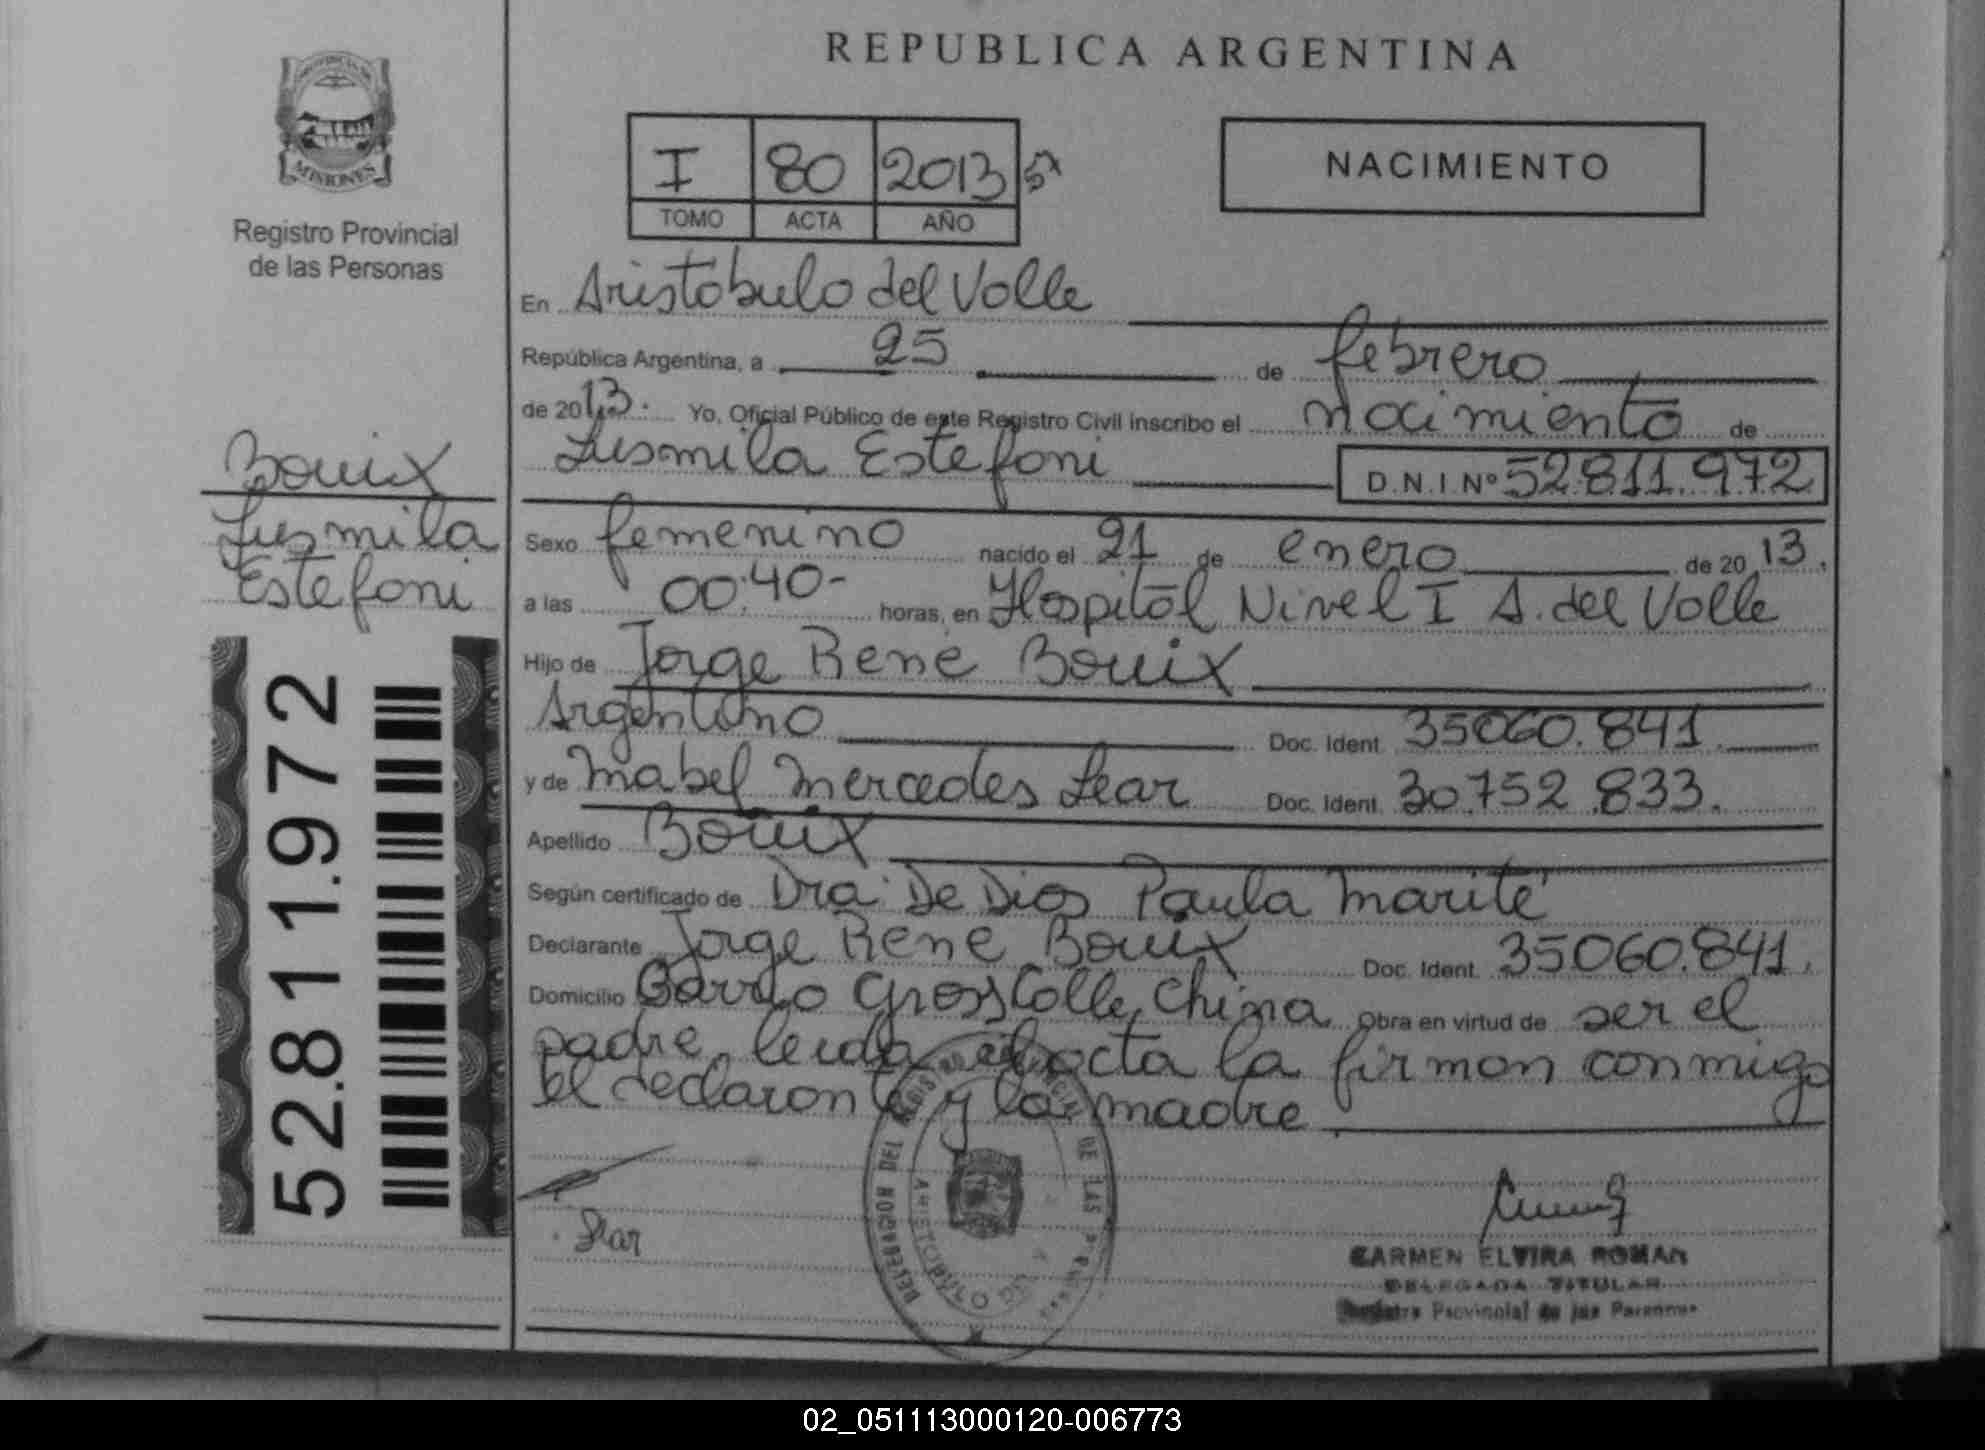 REPUBLICA ARGENTINA
PROVINCIA DE
MISIONES
Registro Provincial
de las Personas
I 80 2013
TOMO ACTA AÑO
NACIMIENTO
En Aristobulo del Valle
República Argentina, a 25 de febrero
de 2013. Yo, Oficial Público de este Registro Civil inscribo el nacimiento de
Lusmila Estefani D.N.I.Nº 52.811.972
Bouix
Lusmila
Estefani
52.811.972
Sexo femenino nacido el 21 de enero de 2013.
a las 00:40- horas, en Hospital Nivel I A. del Valle
Hijo de Jorge Rene Bouix
Argentino Doc. Ident. 35060.841
y de Mabel Mercedes Lear Doc. Ident. 30.752.833.
Apellido Bouix
Según certificado de Dra: De Dios Paula Marité
Declarante Jorge Rene Bouix Doc. Ident. 35060.841.
Domicilio Barrio Gross Calle China Obra en virtud de ser el
padre, leida el acta la firman conmigo
el declarante y la madre
Lear
REGISTRO PROVINCIAL DE LAS
ARISTOBULO DEL
CARMEN ELVIRA ROMAN
DELEGADA TITULAR
Registro Provincial de las Personas
02_051113000120-006773